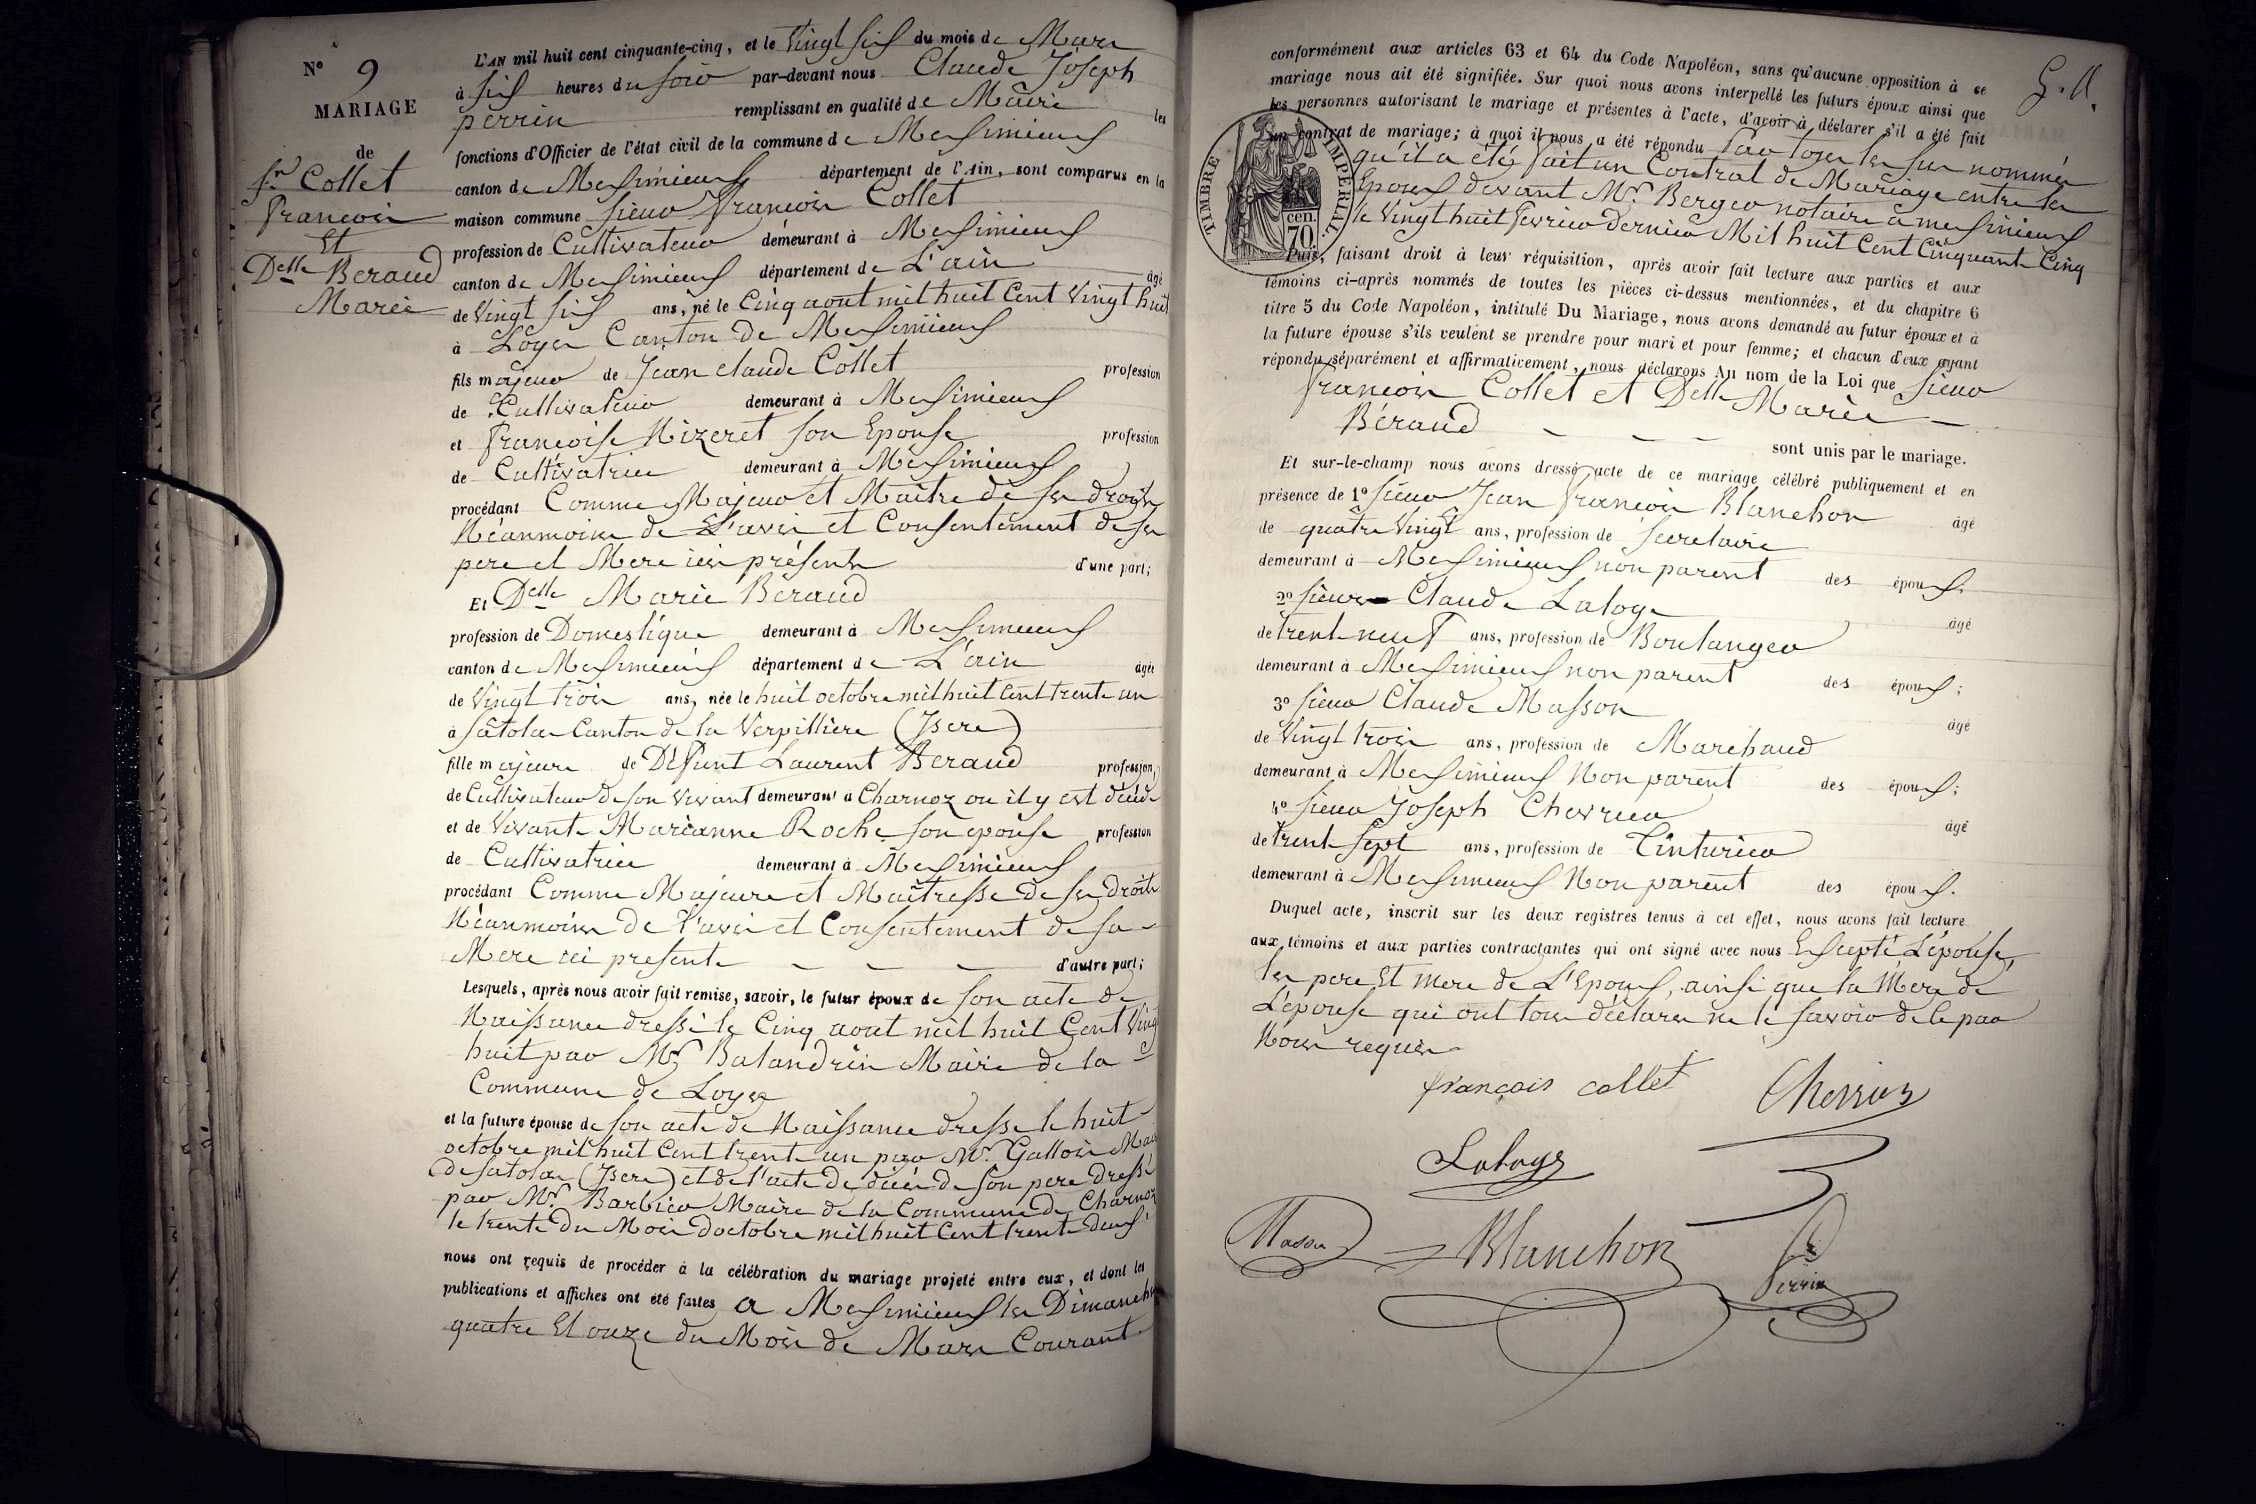 N° 9
MARIAGE
de
Sr Collet
François
Et
Delle Beraud
Marie
L'AN mil huit cent cinquante-cinq, et le Vingt six du mois de Mars
à six heures du soir par-devant nous Claude Joseph
perrin remplissant en qualité de Maire les
fonctions d'Officier de l'état civil de la commune de Meximieux
canton de Meximieux département de l'Ain, sont comparus en la
maison commune Sieur François Collet
profession de Cultivateur demeurant à Meximieux
canton de Meximieux département de L'ain âgé
de Vingt six ans, né le Cinq aout mil huit Cent Vingt huit
à Loyes Canton de Meximieux
fils majeur de Jean claude Collet profession
de Cultivateur demeurant à Meximieux
et françoise Mizeret son Epouse profession
de Cultivatrice demeurant à Meximieux
procédant Comme Majeur et Maître de ses droits
Néanmoins de L'avis et Consentement de ses
pere et Mere ici présents d'une part;
Et Delle Marie Beraud
profession de Domestique demeurant à Meximieux
canton de Meximieux département de L'ain âgée
de Vingt trois ans, née le huit octobre mil huit Cent trente un
à Satolas Canton de la Verpillière (Isere)
fille majeure de Défunt Laurent Beraud profession
de Cultivateur de son vivant demeurant à Charnoz ou il y est décédé
et de vivante Marianne Roche son epouse profession
de Cultivatrice demeurant à Meximieux
procédant Comme Majeure et Maîtresse de ses droits
Néanmoins de l'avis et Consentement de sa
Mere ici presente d'autre part;
Lesquels, après nous avoir fait remise, savoir, le futur époux de son acte de
Naissance dressé le Cinq aout mil huit Cent Vingt
huit par Mr Balandrin Maire de la
Commune de Loyes
et la future épouse de son acte de Naissance dressé le huit
octobre mil huit Cent trente un par Mr Gallois Maire
de Satolas (Isere) et de l'acte de décés de son pere dressé
par Mr Barbier Maire de la Commune de Charnoz
le trente du Mois doctobre mil huit Cent trente deux
nous ont requis de procéder à la célébration du mariage projeté entre eux, et dont les
publications et affiches ont été faites a Meximieux les Dimanches
quatre Et onze du Mois de Mars Courant
conformément aux articles 63 et 64 du Code Napoléon, sans qu'aucune opposition à ce
mariage nous ait été signifiée. Sur quoi nous avons interpellé les futurs époux ainsi que
les personnes autorisant le mariage et présentes à l'acte, d'avoir à déclarer s'il a été fait
un contrat de mariage; à quoi il nous a été répondu Par tous les sus nommés
qu'il a été fait un Contrat de Mariage entre les
Epoux devant Mr Berger notaire à meximieux
le Vingt huit fevrier dernier Mil huit Cent Cinquante Cinq
TIMBRE IMPÉRIAL
70 cen.
Puis, faisant droit à leur réquisition, après avoir fait lecture aux parties et aux
témoins ci-après nommés de toutes les pièces ci-dessus mentionnées, et du chapitre 6
titre 5 du Code Napoléon, intitulé Du Mariage, nous avons demandé au futur époux et à
la future épouse s'ils veulent se prendre pour mari et pour femme; et chacun d'eux ayant
répondu séparément et affirmativement, nous déclarons Au nom de la Loi que Sieur
françois Collet et Delle Marie
Béraud sont unis par le mariage.
Et sur-le-champ nous avons dressé acte de ce mariage célébré publiquement et en
présence de 1° Sieur Jean François Blanchon âgé
de quatre Vingt ans, profession de Secretaire
demeurant à Meximieux non parent des époux.
2° Sieur Claude Laloge âgé
de trente neuf ans, profession de Boulanger
demeurant à Meximieux non parent des époux;
3° Sieur Claude Masson âgé
de Vingt trois ans, profession de Marchand
demeurant à Meximieux Non parent des époux;
4° Sieur Joseph Chevrier âgé
de trente Sept ans, profession de Tinturier
demeurant à Meximieux Non parent des époux.
Duquel acte, inscrit sur les deux registres tenus à cet effet, nous avons fait lecture
aux témoins et aux parties contractantes qui ont signé avec nous Excepté L'épouse,
les pere Et mere de L'Epoux, ainsi que la Mere de
L'épouse qui ont tous déclarés ne le savoir de ce par
Nous requis
françois collet
Laloge
Masson
Blanchon
Perrin